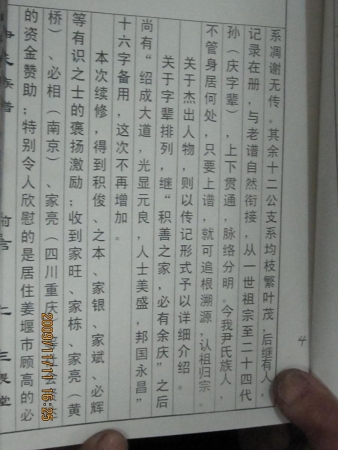 系凋谢无传。其余十二公支系均枝繁叶茂，后继有人，
记录在册，与老谱自然衔接，从一世祖宗至二十四代
孙（庆字辈），上下贯通，脉络分明。今我尹氏族人
不管身居何处，只要上谱，就可追根溯源，认祖归宗。
关于杰出人物，则以传记形式予以详细介绍。
关于字辈排列，继“积善之家，必有余庆”之后
尚有“绍成大道，光显元良，人士美盛，邦国永昌”
十六字备用，这次不再增加。
本次续修，得到积俊、之本、家银、家斌、必辉
等有识之士的褒扬激励；收到家旺、家栋、家亮（黄
桥）、必相（南京）、家亮（四川重庆
的资金赞助；特别令人欣慰的是居住姜堰市顾高的必
氏族谱 前言
4
16:35